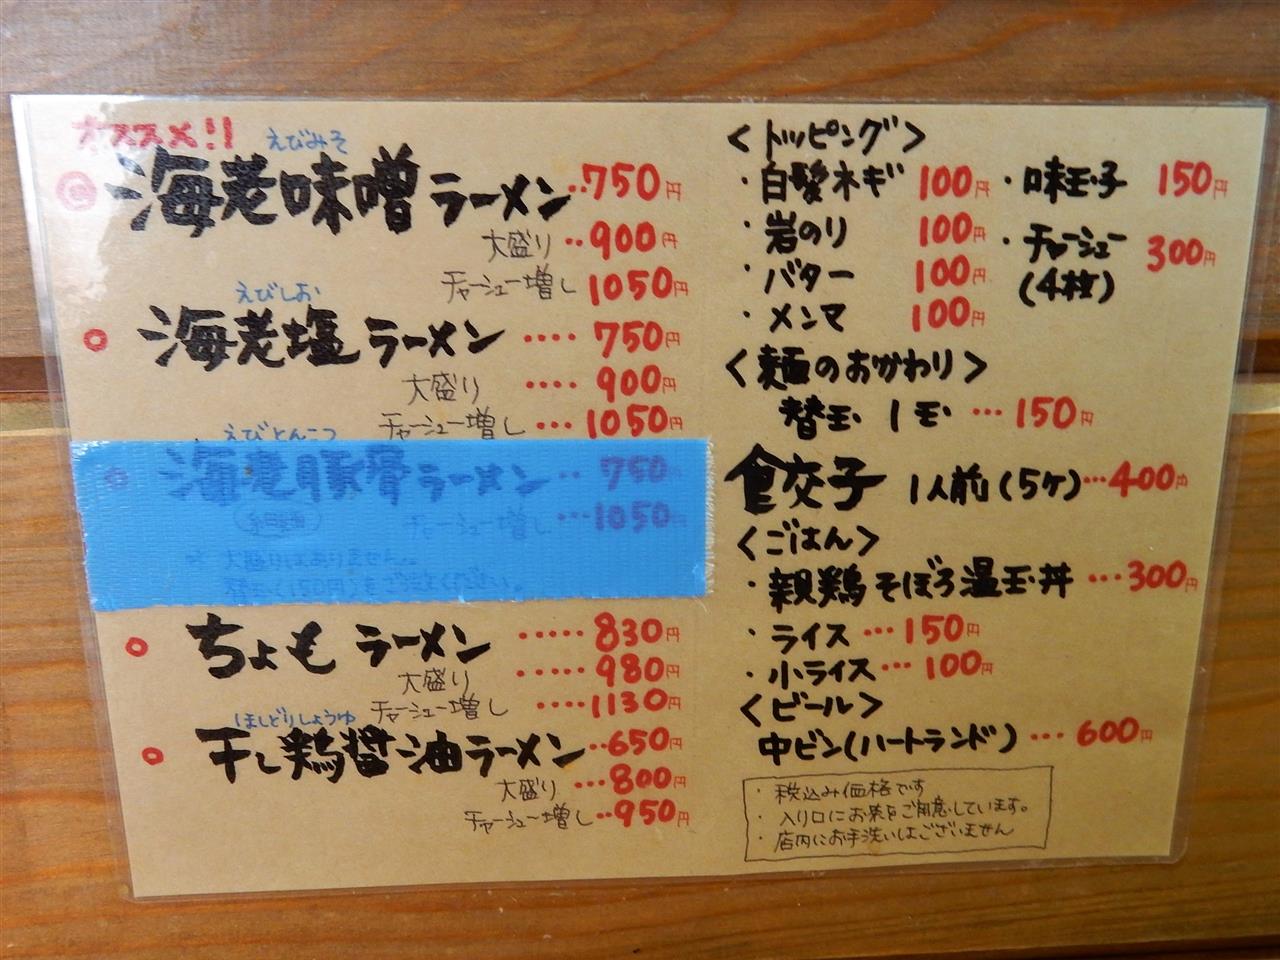 オススメ!!
えびみそ
海老味噌ラーメン‥750円
大盛り‥900円
チャーシュー増し 1050円
えびしお
海老塩ラーメン‥‥750円
大盛り‥‥900円
チャーシュー増し‥1050円
えびとんこつ
海老豚骨ラーメン‥750円
チャーシュー増し…1050円
※大盛りはありません。
替玉(150円)をご注文ください。
ちょもラーメン‥‥‥830円
大盛り‥‥‥980円
チャーシュー増し‥‥1130円
ほしどりしょうゆ
干し鶏醤油ラーメン‥650円
大盛り…800円
チャーシュー増し‥950円
<トッピング>
・白髪ネギ 100円
・岩のり 100円
・バター 100円
・メンマ 100円
・味玉子 150円
・チャーシュー 300円
(4枚)
<麺のおかわり>
替玉 1玉…150円
餃子 1人前(5ケ)…400円
<ごはん>
・親鶏そぼろ温玉丼…300円
・ライス…150円
・小ライス…100円
<ビール>
中ビン(ハートランド)…600円
・税込み価格です
・入り口にお茶をご用意しています。
・店内にお手洗いはございません